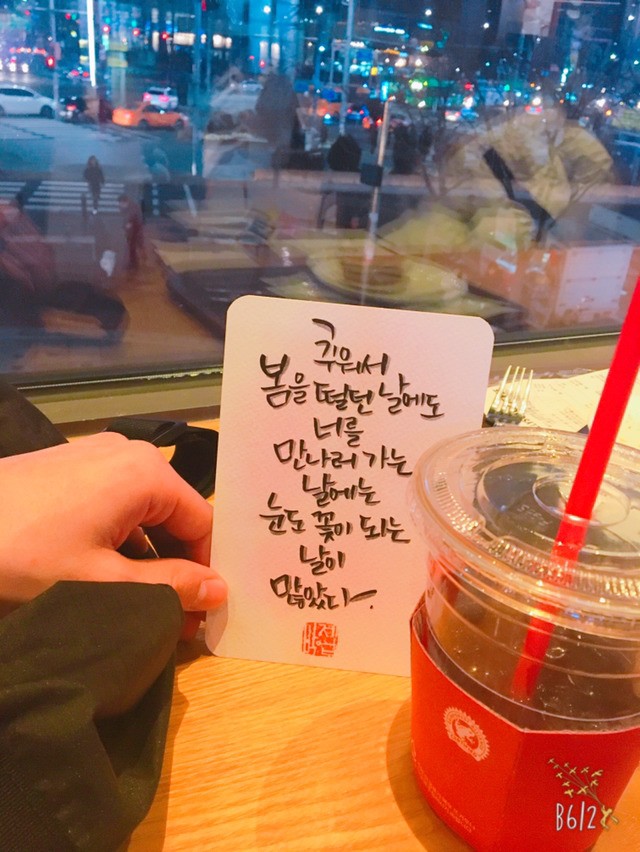 추워서
몸을 떨던 날에도
너를
만나러 가는
날에는
눈도 꽃이 되는
날이
많았다.
B612